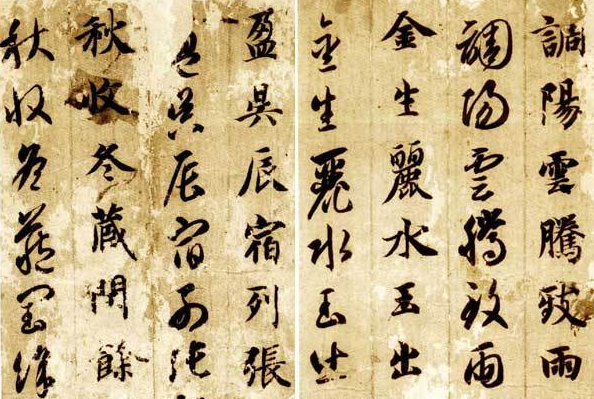 調陽雲騰致雨
調陽雲騰致雨
金生麗水玉出
金生麗水玉出
盈昃辰宿列張
盈昃辰宿列張
秋收冬藏閏餘
秋收冬藏閏餘